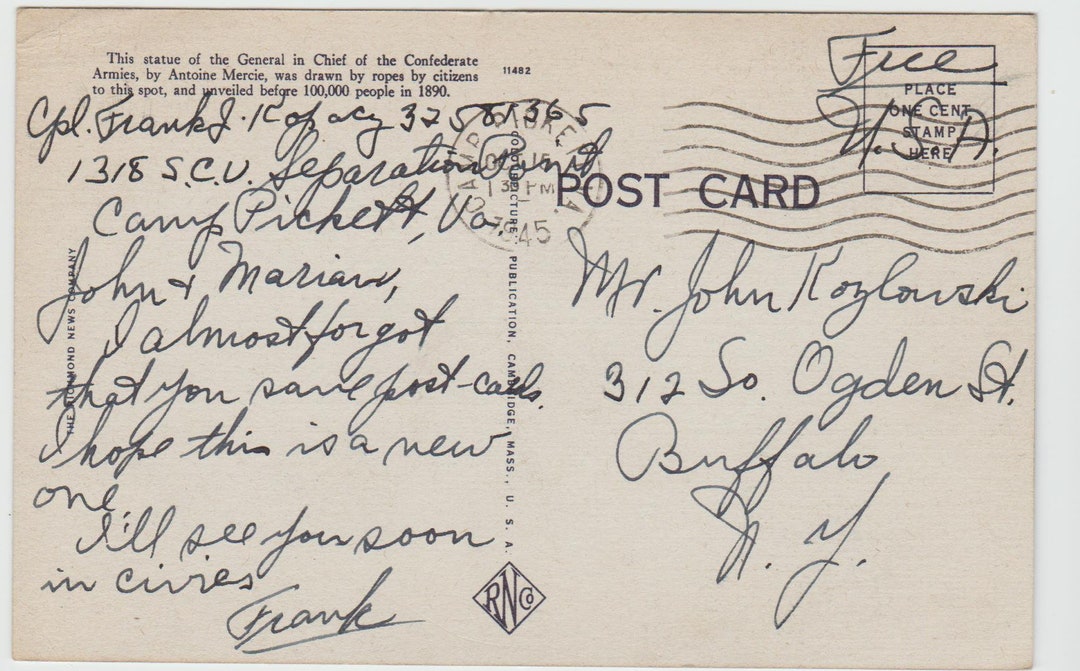 This statue of the General in Chief of the Confederate
Armies, by Antoine Mercie, was drawn by ropes by citizens
to this spot, and unveiled before 100,000 people in 1890.
11482
Cpl. Frank J. Kopacy 32581365
1318 S.C.U. Separation Point
Camp Pickett, Va.
John & Marian,
I almost forgot
that you save post-cards.
I hope this is a new
one.
I'll see you soon
in civies
Frank
THE RICHMOND NEWS COMPANY
COLOURPICTURE PUBLICATION, CAMBRIDGE, MASS., U. S. A.
RNCo
CAMP PICKETT VA.
1945
POST CARD
Free
U.S.A.
PLACE
ONE CENT
STAMP
HERE
Mr. John Kozlowski
312 So. Ogden St.
Buffalo
N. Y.